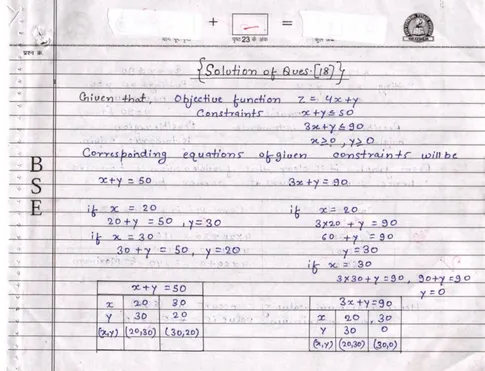 + =
पृष्ठ 23 के अंक
प्रश्न क्र.
{Solution of Ques.[18]}
Given that, Objective function Z = 4x+y
Constraints x+y≤50
3x+y≤90
x≥0, y≥0
Corresponding equations of given constraints will be
x+y=50 3x+y=90
if x = 20 if x=20
20+y=50, y=30 3×20+y=90
if x=30 60+y=90
30+y=50, y=20 y=30
if x=30
3×30+y=90, 90+y=90
y=0
x+y=50
x 20 30
y 30 20
(x,y) (20,30) (30,20)
3x+y=90
x 20 30
y 30 0
(x,y) (20,30) (30,0)
B
S
E